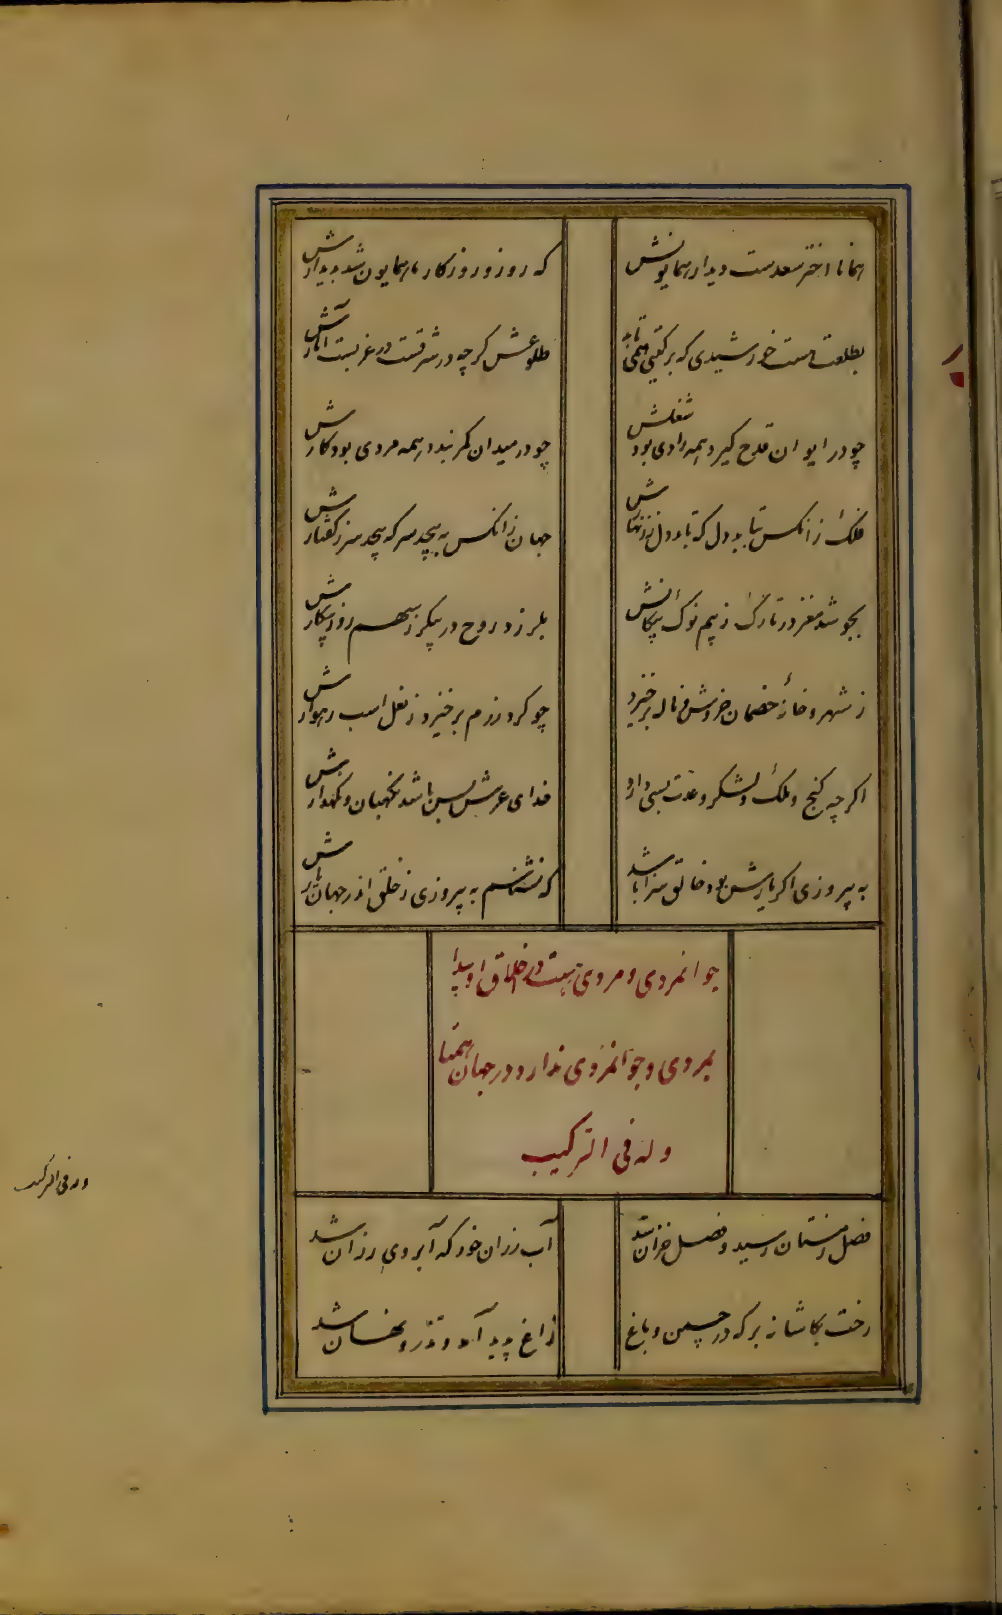 همانا اختر سعدست دیدار همایونش
که روز و روزکار ما همایون شد بدیدارش
بطلعت هست خورشیدی که بر کیتی همی تابد
طلوعش کرچه در شرقست در غربست آثارش
چو در ایوان قدح کیرد همه رادی بود شغلش
چو در میدان کمر بندد همه مردی بود کارش
فلک زانکس بتابد دل که تابد دل
جهان زانکس به پیچد سر که پیچد سر ز کفتارش
بجوشد مغز در تارک ز بیم نوک پیکانش
بلرزد روح در پیکر ز سهم روز پیکارش
ز شهر و خانهٔ خصمان خروش و ناله برخیزد
چو کرد رزم برخیزد ز نعل اسب رهوارش
اکرچه کنج و ملک و لشکر و عدت بسی دارد
خدای عرش بس باشد نکهبان و نکهدارش
به پیروزی اکر یارش بود خالق سزا باشد
که نشناسم به پیروزی ز خلق اندر جهان یارش
جوانمردی و مردی هست در اخلاق او پیدا
بمردی و جوانمردی ندارد در جهان همتا
وله فی الترکیب
وله فی الترکیب
فصل زمستان رسید و فصل خزان شد
آب رزان خور که آبروی رزان شد
رخت بکاشانه بر که در چمن و باغ
زاغ پدید آمد و تذرو نهان شد